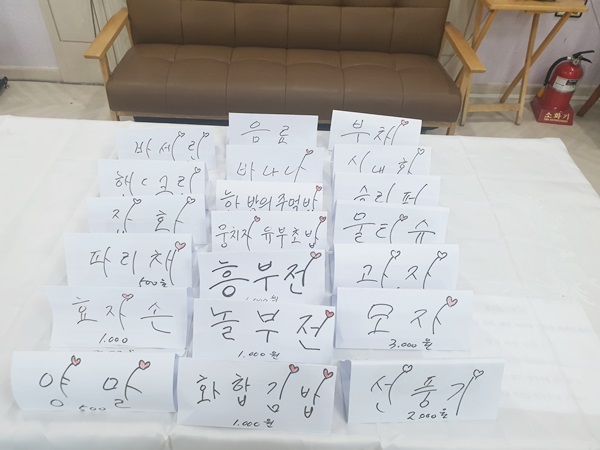 음료
부채
바세린
바나나
시내화
핸드크림
늘하 밧의 주먹밥
슬리퍼
잡화
뭉치자 유부초밥
물티슈
파리채
500원
흥부전
1.000원
과자
효자손
1.000
놀부전
1.000원
모자
3.000원
양말
500
화합김밥
1.000원
선풍기
2.000원
소화기